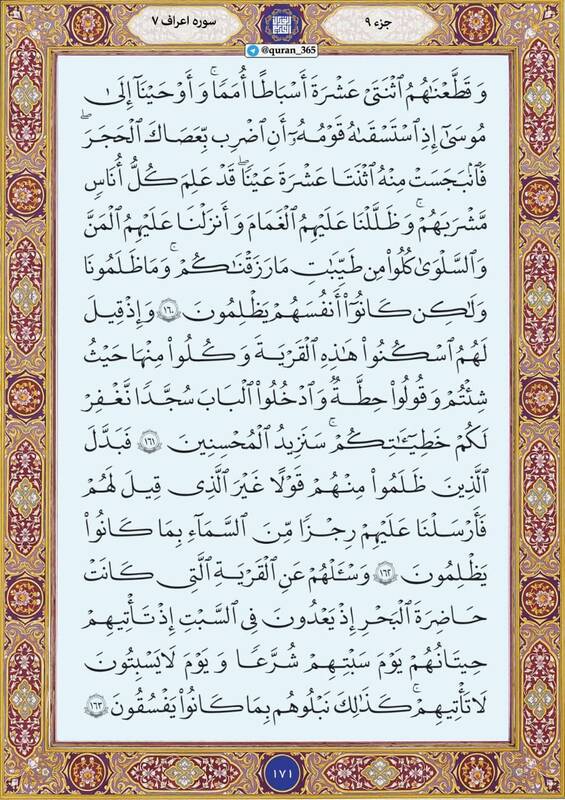 جزء ۹
سوره اعراف ۷
@quran_365
وَقَطَّعْنَٰهُمُ ٱثْنَتَىْ عَشْرَةَ أَسْبَاطًا أُمَمًا ۚ وَأَوْحَيْنَآ إِلَىٰ
مُوسَىٰٓ إِذِ ٱسْتَسْقَىٰهُ قَوْمُهُۥٓ أَنِ ٱضْرِب بِّعَصَاكَ ٱلْحَجَرَ ۖ
فَٱنۢبَجَسَتْ مِنْهُ ٱثْنَتَا عَشْرَةَ عَيْنًا ۖ قَدْ عَلِمَ كُلُّ أُنَاسٍ
مَّشْرَبَهُمْ ۚ وَظَلَّلْنَا عَلَيْهِمُ ٱلْغَمَامَ وَأَنزَلْنَا عَلَيْهِمُ ٱلْمَنَّ
وَٱلسَّلْوَىٰ ۖ كُلُوا۟ مِن طَيِّبَٰتِ مَا رَزَقْنَٰكُمْ ۚ وَمَا ظَلَمُونَا
وَلَٰكِن كَانُوٓا۟ أَنفُسَهُمْ يَظْلِمُونَ ۝١٦٠ وَإِذْ قِيلَ
لَهُمُ ٱسْكُنُوا۟ هَٰذِهِ ٱلْقَرْيَةَ وَكُلُوا۟ مِنْهَا حَيْثُ
شِئْتُمْ وَقُولُوا۟ حِطَّةٌ وَٱدْخُلُوا۟ ٱلْبَابَ سُجَّدًا نَّغْفِرْ
لَكُمْ خَطِيٓـَٰٔتِكُمْ ۚ سَنَزِيدُ ٱلْمُحْسِنِينَ ۝١٦١ فَبَدَّلَ
ٱلَّذِينَ ظَلَمُوا۟ مِنْهُمْ قَوْلًا غَيْرَ ٱلَّذِى قِيلَ لَهُمْ
فَأَرْسَلْنَا عَلَيْهِمْ رِجْزًا مِّنَ ٱلسَّمَآءِ بِمَا كَانُوا۟
يَظْلِمُونَ ۝١٦٢ وَسْـَٔلْهُمْ عَنِ ٱلْقَرْيَةِ ٱلَّتِى كَانَتْ
حَاضِرَةَ ٱلْبَحْرِ إِذْ يَعْدُونَ فِى ٱلسَّبْتِ إِذْ تَأْتِيهِمْ
حِيتَانُهُمْ يَوْمَ سَبْتِهِمْ شُرَّعًا وَيَوْمَ لَا يَسْبِتُونَ ۙ
لَا تَأْتِيهِمْ ۚ كَذَٰلِكَ نَبْلُوهُم بِمَا كَانُوا۟ يَفْسُقُونَ ۝١٦٣
۱۷۱